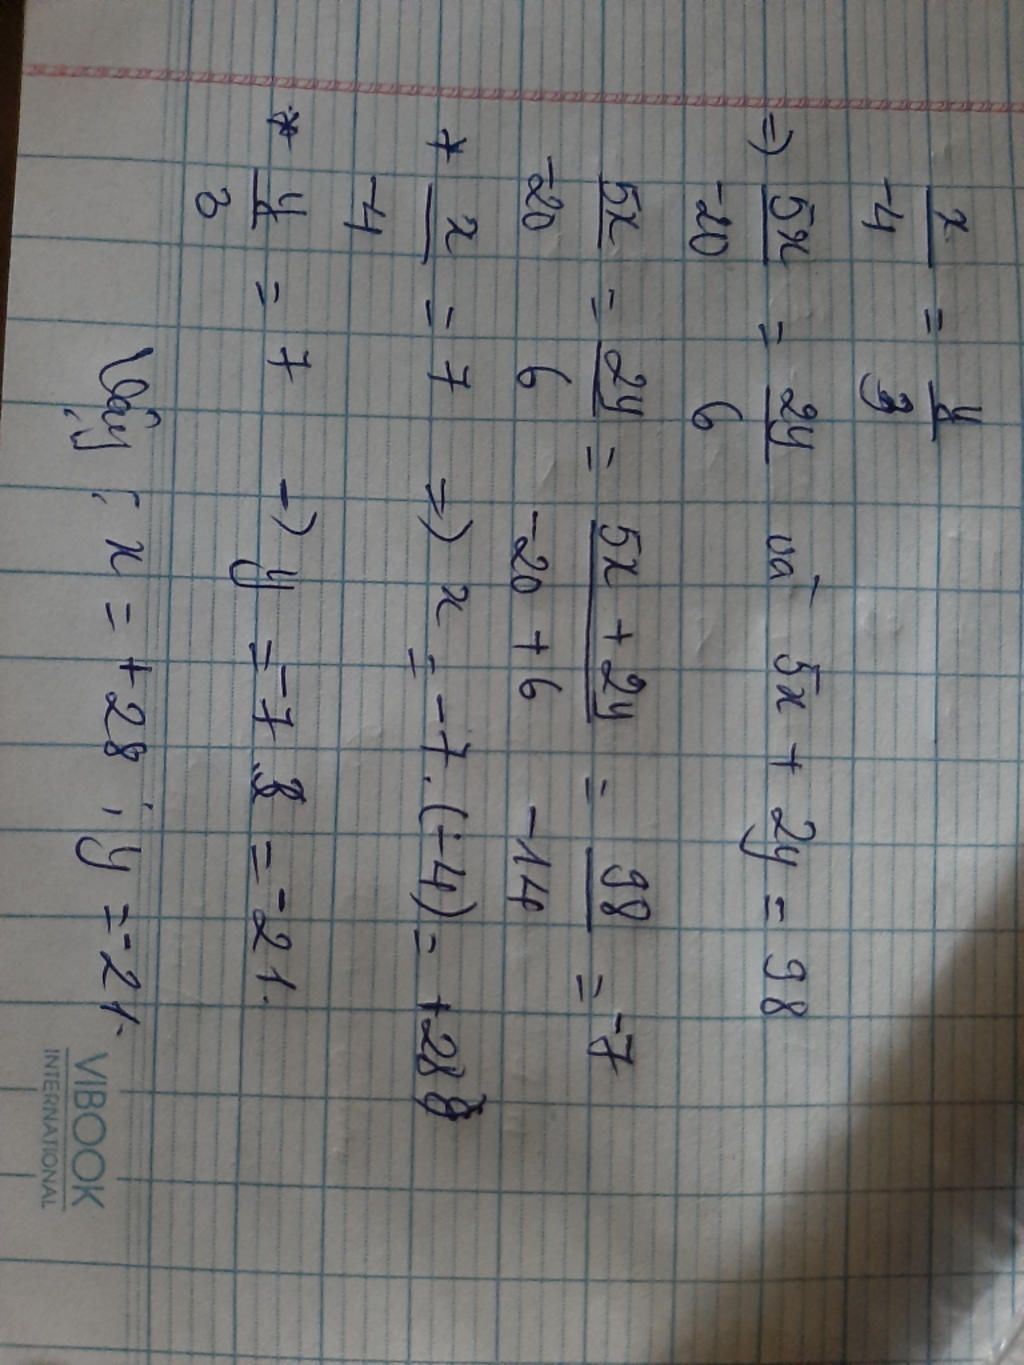 x/-4 = y/3
=) 5x/-20 = 2y/6 và 5x + 2y = 98
5x/-20 = 2y/6 = 5x + 2y/-20 + 6 = 98/-14 = -7
* x/-4 = 7 =) x = -7.(-4) = +28
* y/3 = 7 -) y = -7.3 = -21.
Vậy : x = +28 ; y = -21.
VIBOOK
INTERNATIONAL